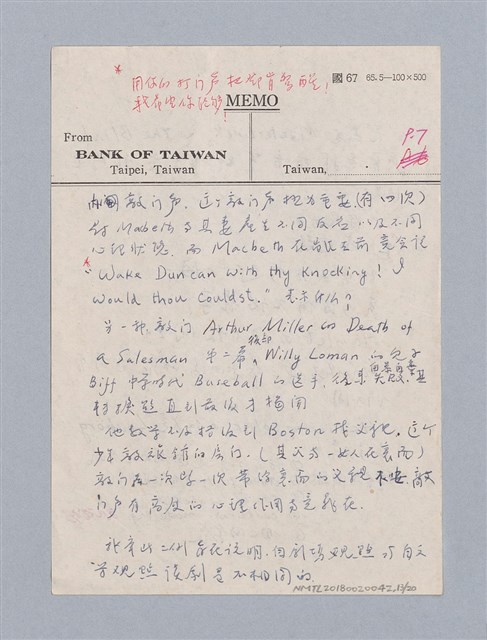 * 用你的打门声把鄧肯答醒!
我希望你能够!
國 67 65.5—100×500
MEMO
From
BANK OF TAIWAN
Taipei, Taiwan
Taiwan,
P.7
敲门声。这个敲门声极为重要(有四次)
对Macbeth与其妻产生不同反应以及不同
心理状态。而Macbeth在 前竟会说
* "Wake Duncan with thy Knocking! I
would thou Couldst." 表示什么?
另一种敲门 Arthur Miller Death of
a Salesman 第二幕後部, Willy Loman 的兒子
Biff 中学时代 Baseball 的选手, 後来
直到最後才揭開
他数学不及格後到 Boston 找父親, 这个
少年敲旅館的房门。(其父与一女人在裏面)
敲门 一次 一次 裏面的父親不安 敲
门声有高度的心理作用与意義在。
此二例 在说明, 由劇場观點 与自文
学观點 该劇是不相同的。
NMTL20180020042, 13/20